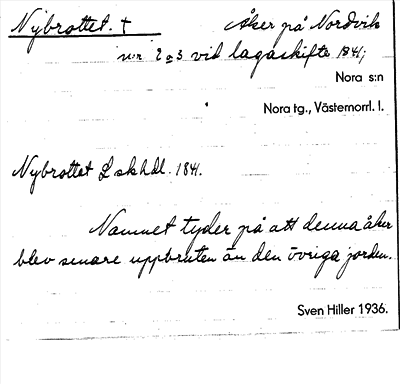 Nybrottet. † Åker på Nordvik
n:r 2 o 3 vid lagaskifte 1841;
Nora s:n
Nora tg., Västernorrl. l.
Nybrottet L skhdl. 1841.
Namnet tyder på att denna åker
blev senare uppbruten än den övriga jorden.
Sven Hiller 1936.